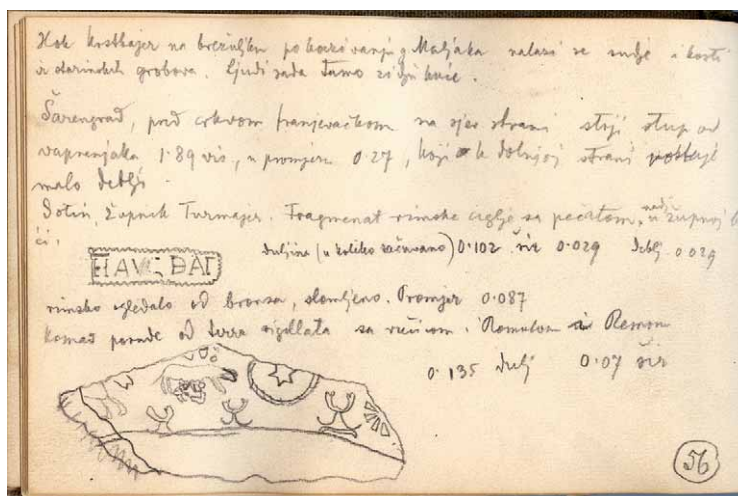 Kod na brežuljku po kazivanju g. Maljaka nalazi se sudje i kosti
iz starinskih grobova. Ljudi sada tamo zidju kuće.
Šarengrad, pred crkvom franjevačkom na sjev strani stoji stup od
vapnenjaka 1·89 vis, u promjeru 0·27, koji k dolnjoj strani postaje
malo deblji.
Sotin, Župnik Turmajer. Fragmenat rimske ciglje sa pečatom, nadj. u župnoj
ći.
duljina (u koliko sačuvano) 0·102 šir 0·029 deblj 0·029
HAVG BAT
rimsko ogledalo od bronsa, slomljeno. Promjer 0·087
komad posude od terra sigillata sa vučicom i Romulom i Remom
0·135 dulj 0·07 šir
56